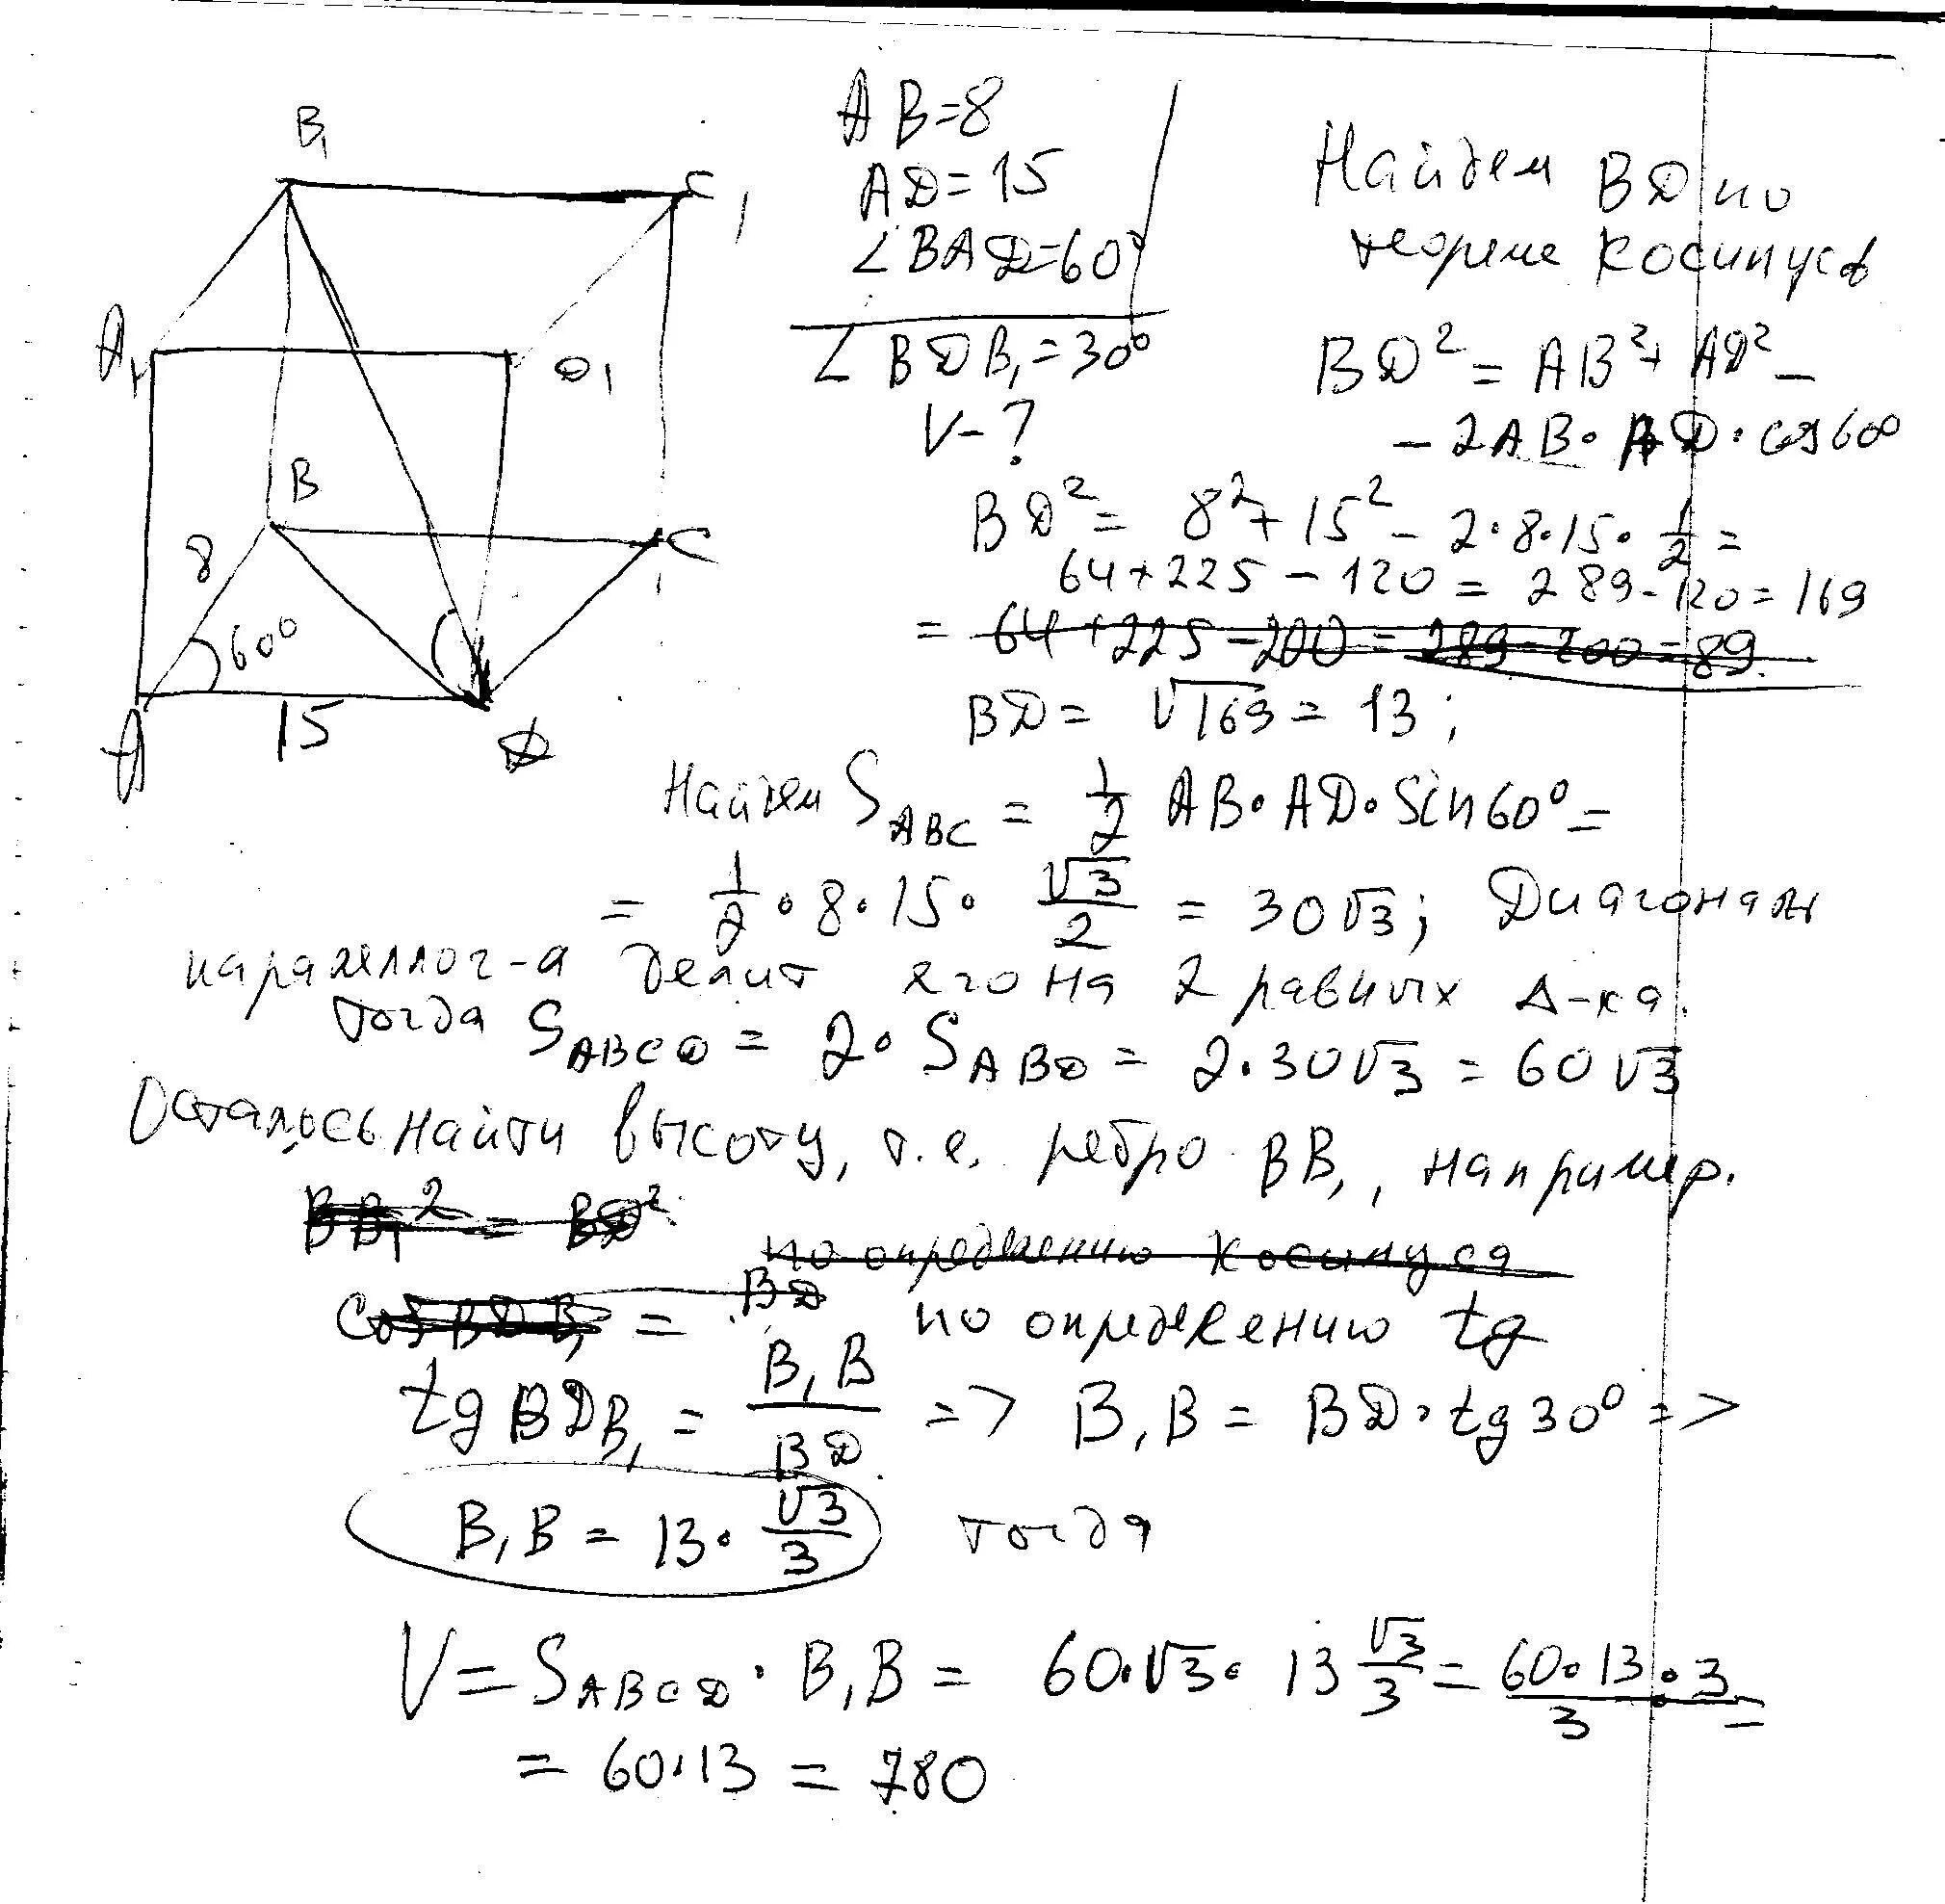 B₁
C₁
A₁
D₁
B
C
8
60°
15
A
D
AB=8
AD=15
∠BAD=60°
∠BDB₁=30°
V-?
Найдем BD по
теореме косинусов
BD² = AB² + AD² –
– 2AB · AD · cos60°
BD² = 8² + 15² – 2·8·15· 1/2 =
64+225 – 120 = 289–120 = 169
= 64+225–200 = 289–200 = 89
BD = √169 = 13;
Найдем S ABC = 1/2 AB·AD·Sin60° =
= 1/2 · 8 · 15 · √3/2 = 30√3; Диагональ
параллелог-а делит его на 2 равных Δ-ка.
тогда S ABCD = 2 · S ABD = 2·30√3 = 60√3
Осталось найти высоту, т.е. ребро BB₁, например.
BB₁² = BD²
по определению косинуса
cos BDB₁ = BD по определению tg
tg BDB₁ = B₁B/BD => B₁B = BD · tg30° =>
B₁B = 13 · √3/3 тогда
V = S ABCD · B₁B = 60·√3 · 13 √3/3 = 60·13·3/3 =
= 60·13 = 780